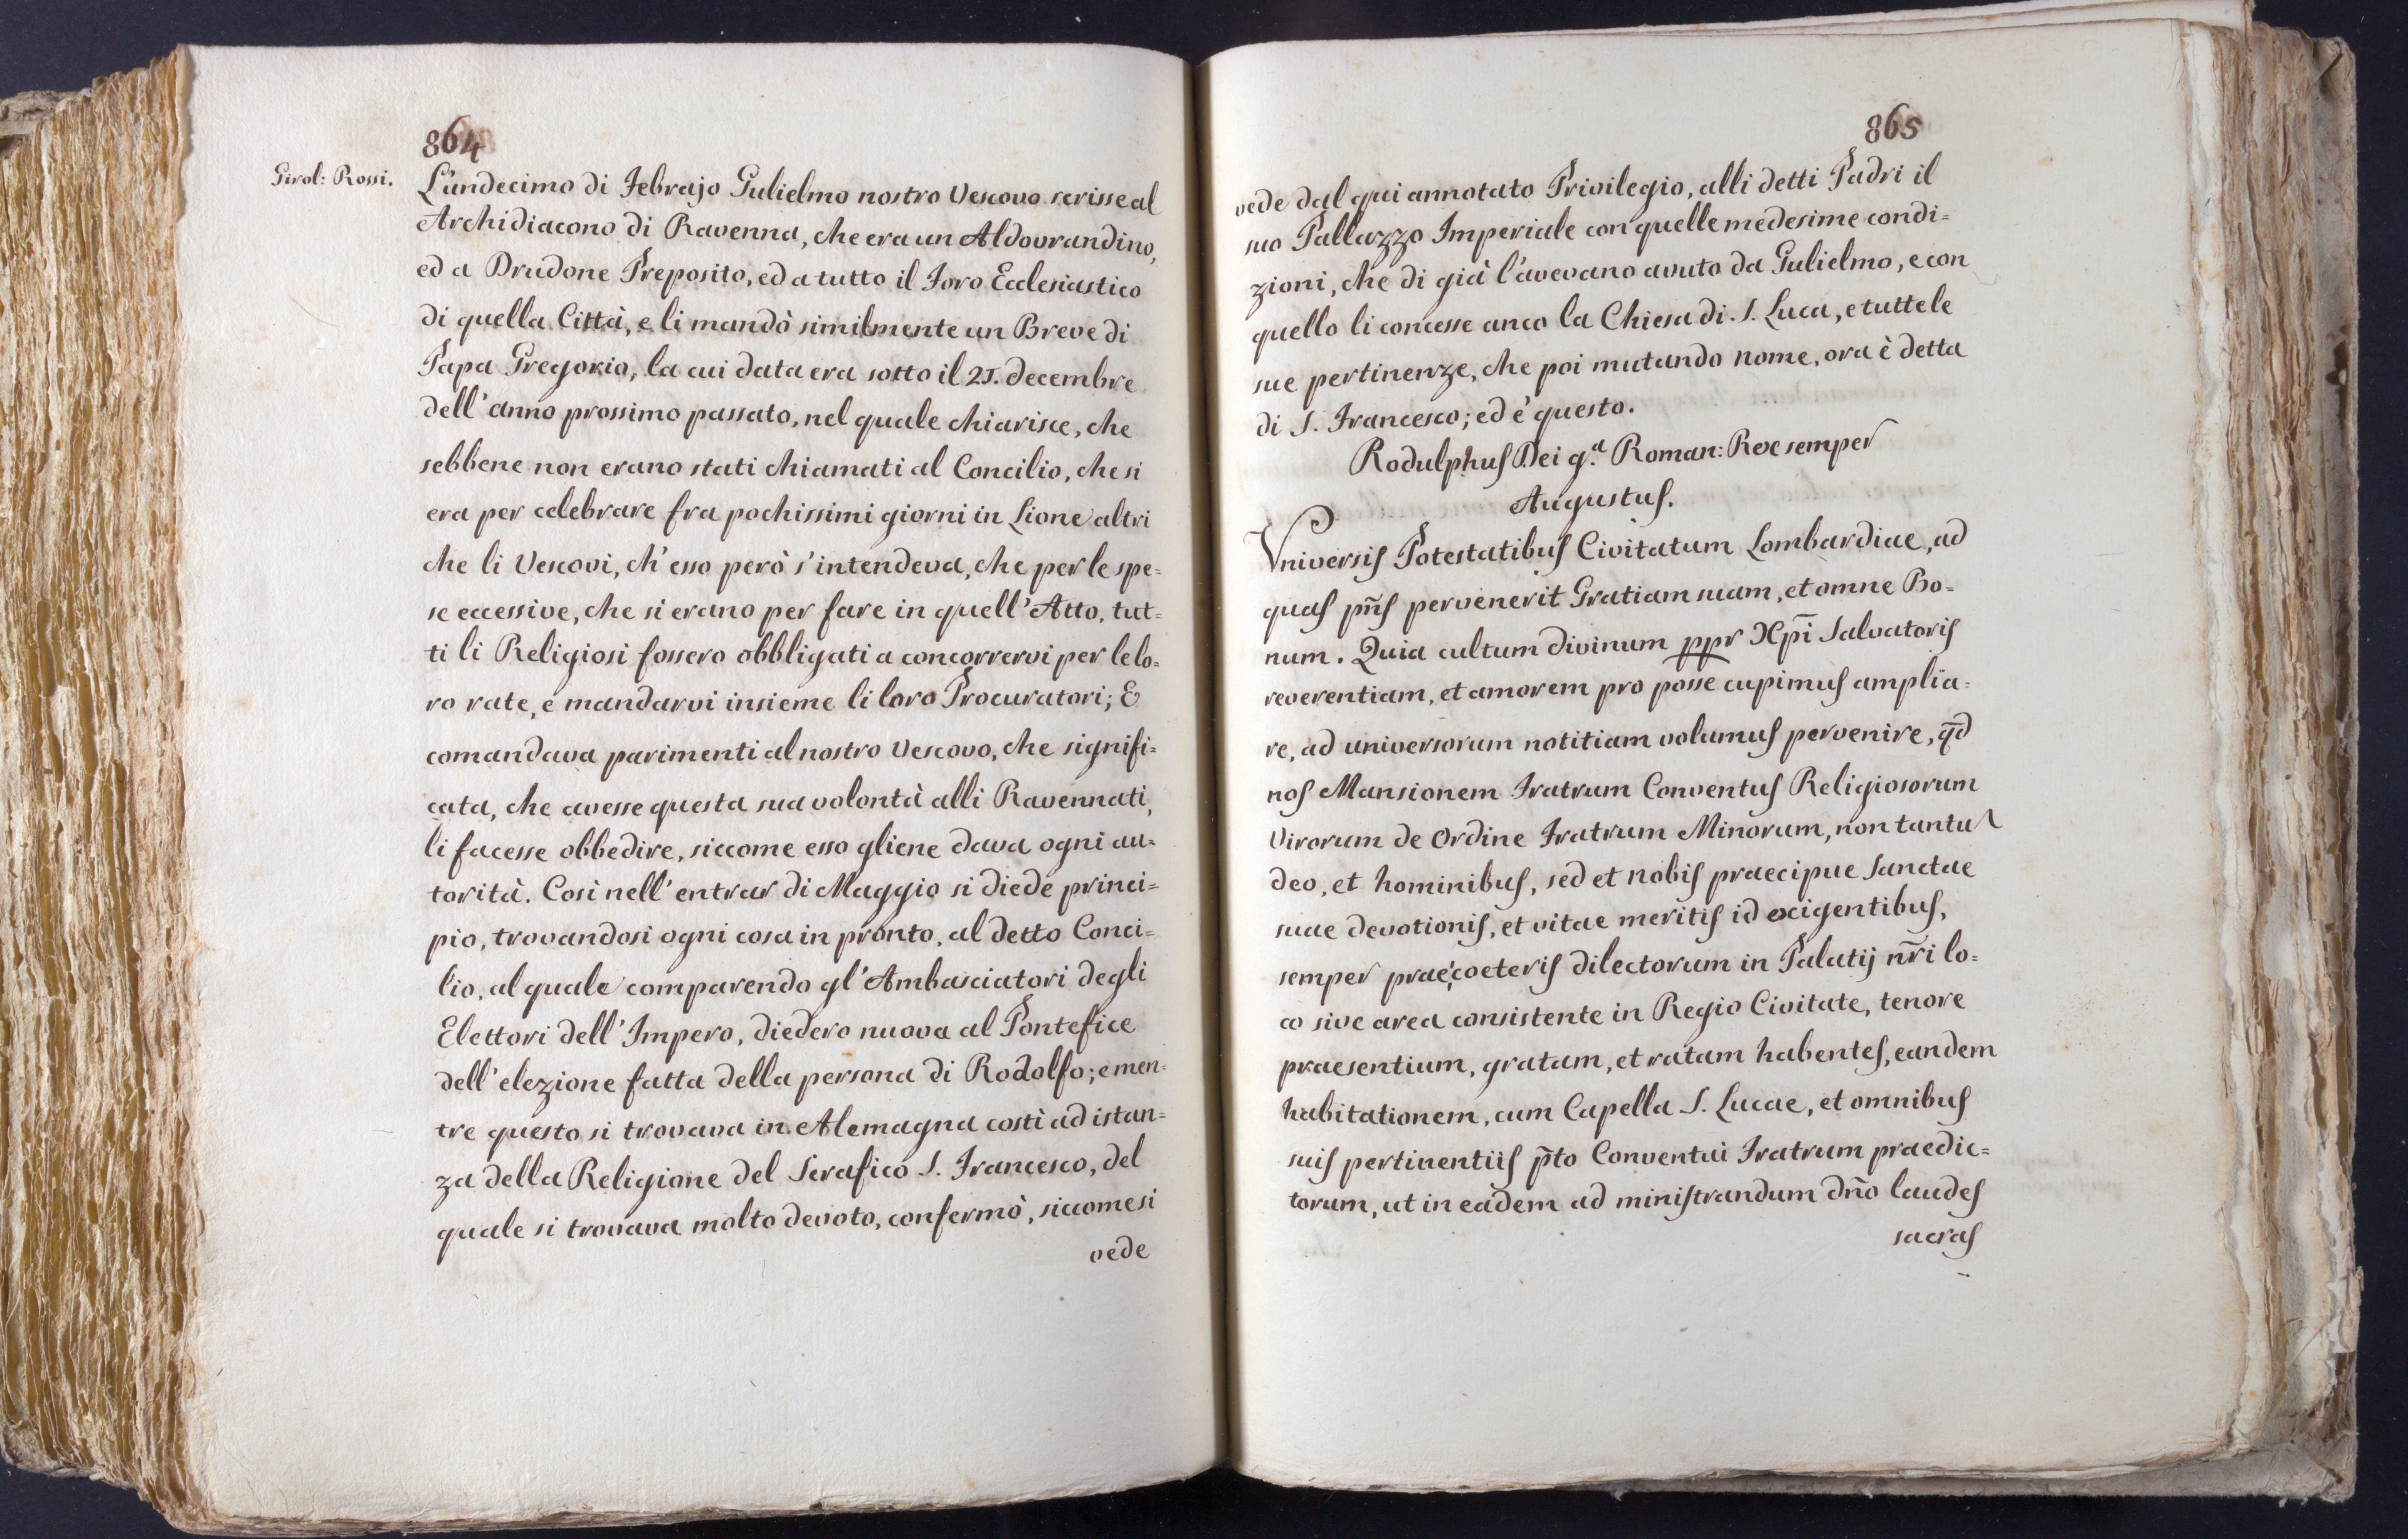 864
Girol: Rossi.
L'undecimo di Febrajo Gulielmo nostro Vescovo scrisse al
Archidiacono di Ravenna, che era un Aldovrandino,
ed a Drudone Preposito, ed a tutto il Foro Ecclesiastico
di quella Città, e li mandò similmente un Breve di
Papa Gregorio, la cui data era sotto il 21. decembre
dell'anno prossimo passato, nel quale chiarisce, che
sebbene non erano stati chiamati al Concilio, che si
era per celebrare fra pochissimi giorni in Lione altri
che li Vescovi, ch'esso però s'intendeva, che per le spe=
se eccessive, che si erano per fare in quell'Atto, tut=
ti li Religiosi fossero obbligati a concorrervi per le lo=
ro rate, e mandarvi insieme li loro Procuratori; &
comandava parimenti al nostro Vescovo, che signifi=
cata, che avesse questa sua volontà alli Ravennati,
li facesse obbedire, siccome esso gliene dava ogni au=
torità. Così nell'entrar di Maggio si diede princi=
pio, trovandosi ogni cosa in pronto, al detto Conci=
lio, al quale comparendo gl'Ambasciatori degli
Elettori dell'Impero, diedero nuova al Pontefice
dell'elezione fatta della persona di Rodolfo; e men=
tre questo si trovava in Alemagna costì ad istan=
za della Religione del Serafico S. Francesco, del
quale si trovava molto devoto, confermò, siccome si
vede
865
vede dal qui annotato Privilegio, alli detti Padri il
suo Pallazzo Imperiale con quelle medesime condi=
zioni, che di già l'avevano avuto da Gulielmo, e con
quello li concesse anco la Chiesa di S. Luca, e tutte le
sue pertinenze, che poi mutando nome, ora è detta
di S. Francesco; ed è questo.
Rodulphuſ Dei g.ª Roman: Rex semper
Auguſtuſ.
Vniversiſ Potestatibuſ Civitatum Lombardiae, ad
quaſ pn̄ſ pervenerit Gratiam suam, et omne Bo=
num. Quia cultum divinum ppr Xp̄i Salvatoriſ
reverentiam, et amorem pro posse cupimuſ amplia=
re, ad universorum notitiam volumuſ pervenire, qd̄
noſ Mansionem Fratrum Conventuſ Religiosorum
Virorum de Ordine Fratrum Minorum, non tantu
deo, et hominibuſ, sed et nobiſ praecipue Sanctae
suae devotioniſ, et vitae meritiſ id exigentibuſ,
semper prae coeteriſ dilectorum in Palatij nr̄i lo=
co sive area consistente in Regio Civitate, tenore
praesentium, gratam, et ratam habenteſ, eandem
habitationem, cum Capella S. Lucae, et omnibuſ
suiſ pertinentiiſ p̄to Conventui Fratrum praedic=
torum, ut in eadem ad miniſtrandum dn̄o laudeſ
sacraſ